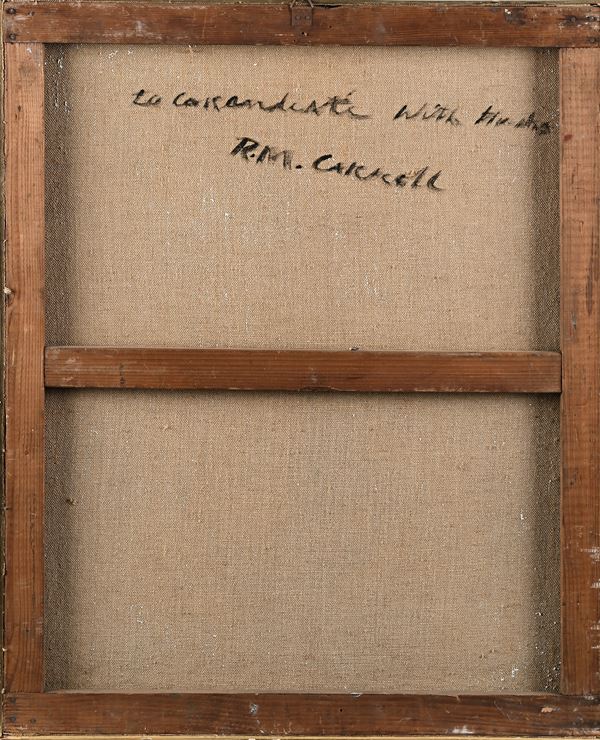 to Carandente With
R.M. Carroll